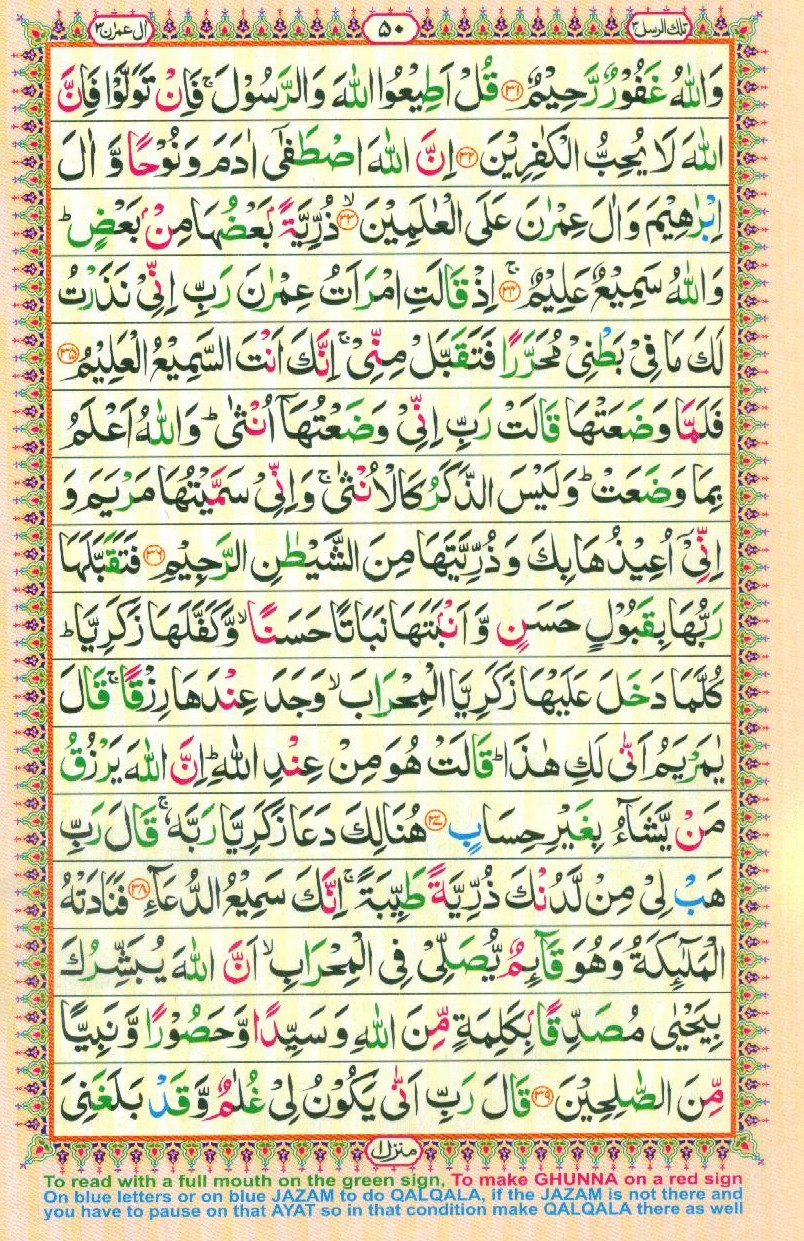 اٰل عمرٰن ٣ ٥٠ تلك الرسل ٣
وَاللّٰهُ غَفُوْرٌ رَّحِيْمٌ ۝٣١ قُلْ اَطِيْعُوا اللّٰهَ وَالرَّسُوْلَ ۚ فَاِنْ تَوَلَّوْا فَاِنَّ
اللّٰهَ لَا يُحِبُّ الْكٰفِرِيْنَ ۝٣٢ اِنَّ اللّٰهَ اصْطَفٰۤى اٰدَمَ وَنُوْحًا وَّ اٰلَ
اِبْرٰهِيْمَ وَاٰلَ عِمْرٰنَ عَلَى الْعٰلَمِيْنَ ۙ۝٣٣ ذُرِّيَّةًۢ بَعْضُهَا مِنْۢ بَعْضٍ ؕ
وَاللّٰهُ سَمِيْعٌ عَلِيْمٌ ۚ۝٣٤ اِذْ قَالَتِ امْرَاَتُ عِمْرٰنَ رَبِّ اِنِّىْ نَذَرْتُ
لَكَ مَا فِىْ بَطْنِىْ مُحَرَّرًا فَتَقَبَّلْ مِنِّىْ ۚ اِنَّكَ اَنْتَ السَّمِيْعُ الْعَلِيْمُ ۝٣٥
فَلَمَّا وَضَعَتْهَا قَالَتْ رَبِّ اِنِّىْ وَضَعْتُهَاۤ اُنْثٰى ؕ وَاللّٰهُ اَعْلَمُ
بِمَا وَضَعَتْ ؕ وَلَيْسَ الذَّكَرُ كَالْاُنْثٰى ۚ وَاِنِّىْ سَمَّيْتُهَا مَرْيَمَ وَ
اِنِّىْۤ اُعِيْذُهَا بِكَ وَذُرِّيَّتَهَا مِنَ الشَّيْطٰنِ الرَّجِيْمِ ۝٣٦ فَتَقَبَّلَهَا
رَبُّهَا بِقَبُوْلٍ حَسَنٍ وَّاَنْۢبَتَهَا نَبَاتًا حَسَنًا ۙ وَّكَفَّلَهَا زَكَرِيَّا ؕ
كُلَّمَا دَخَلَ عَلَيْهَا زَكَرِيَّا الْمِحْرَابَ ۙ وَجَدَ عِنْدَهَا رِزْقًا ۚ قَالَ
يٰمَرْيَمُ اَنّٰى لَكِ هٰذَا ؕ قَالَتْ هُوَ مِنْ عِنْدِ اللّٰهِ ؕ اِنَّ اللّٰهَ يَرْزُقُ
مَنْ يَّشَآءُ بِغَيْرِ حِسَابٍ ۝٣٧ هُنَالِكَ دَعَا زَكَرِيَّا رَبَّهٗ ۚ قَالَ رَبِّ
هَبْ لِىْ مِنْ لَّدُنْكَ ذُرِّيَّةً طَيِّبَةً ۚ اِنَّكَ سَمِيْعُ الدُّعَآءِ ۝٣٨ فَنَادَتْهُ
الْمَلٰٓئِكَةُ وَهُوَ قَآئِمٌ يُّصَلِّىْ فِى الْمِحْرَابِ ۙ اَنَّ اللّٰهَ يُبَشِّرُكَ
بِيَحْيٰى مُصَدِّقًاۢ بِكَلِمَةٍ مِّنَ اللّٰهِ وَسَيِّدًا وَّحَصُوْرًا وَّنَبِيًّا
مِّنَ الصّٰلِحِيْنَ ۝٣٩ قَالَ رَبِّ اَنّٰى يَكُوْنُ لِىْ غُلٰمٌ وَّقَدْ بَلَغَنِىَ
منزل ١
To read with a full mouth on the green sign, To make GHUNNA on a red sign
On blue letters or on blue JAZAM to do QALQALA, if the JAZAM is not there and
you have to pause on that AYAT so in that condition make QALQALA there as well